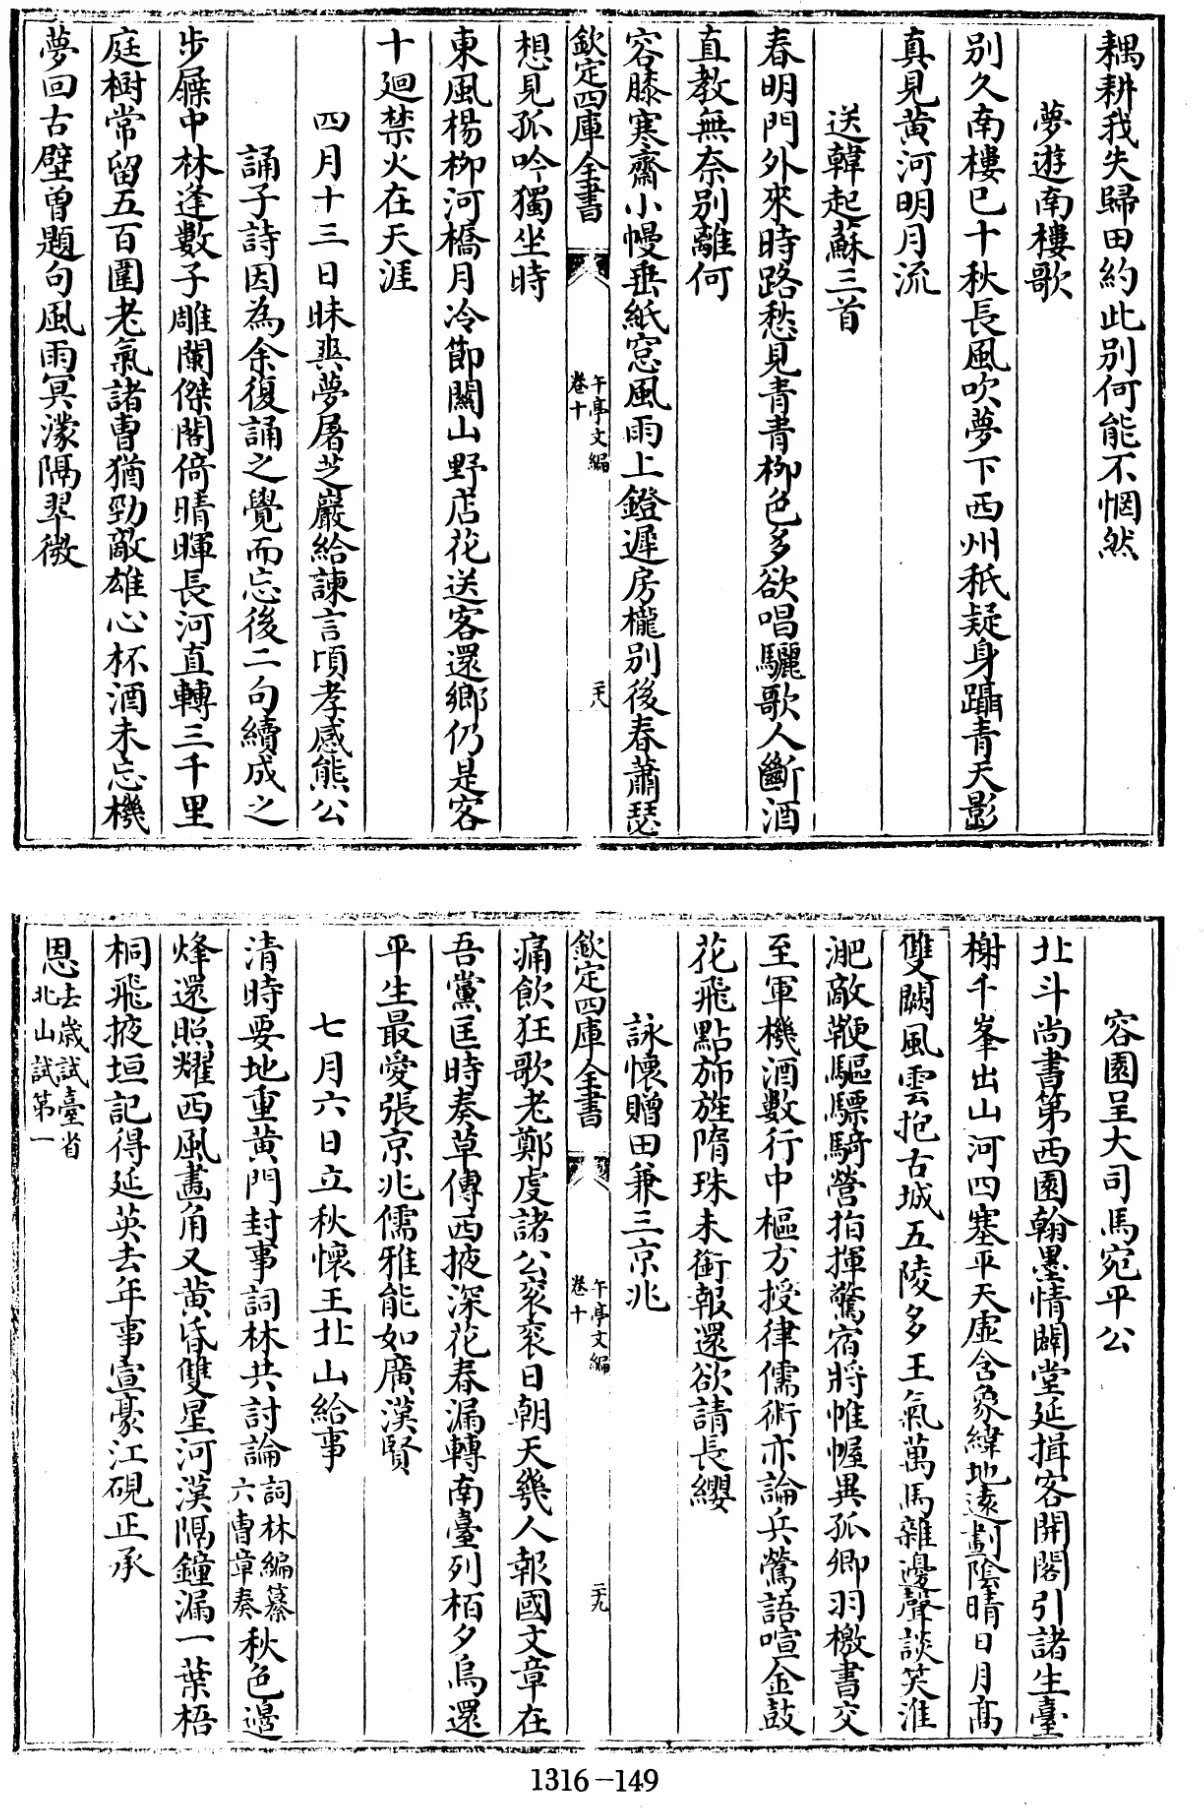 耦耕我失歸田約此别何能不惘然
夢遊南樓歌
别久南樓已十秋長風吹夢下西州秖疑身躡青天影
真見黄河明月流
送韓起蘇三首
春明門外來時路愁見青青柳色多欲唱驪歌人斷酒
直教無奈别離何
容膝寒齋小幔垂紙窓風雨上鐙遲房櫳别後春蕭瑟
欽定四庫全書
午亭文編
卷十
二十八
想見孤吟獨坐時
東風楊柳河橋月冷節關山野店花送客還鄉仍是客
十廻禁火在天涯
四月十三日昧爽夢屠芝巖給諫言頃孝感熊公
誦子詩因為余復誦之覺而忘後二句續成之
步屧中林逢數子雕闌傑閣倚晴暉長河直轉三千里
庭樹常留五百圍老氣諸曹猶勁敵雄心杯酒未忘機
夢回古壁曾題句風雨冥濛隔翠微
容園呈大司馬宛平公
北斗尚書第西園翰墨情闢堂延揖客開閣引諸生臺
榭千峯出山河四塞平天虛含象緯地遠劃陰晴日月高
雙闕風雲抱古城五陵多王氣萬馬雜邊聲談笑淮
淝敵鞭驅驃騎營指揮驚宿將帷幄異孤卿羽檄書交
至軍機酒數行中樞方授律儒術亦論兵鶯語喧金鼓
花飛點斾旌隋珠未銜報還欲請長纓
詠懷贈田兼三京兆
欽定四庫全書
午亭文編
卷十
二十九
痛飲狂歌老鄭虔諸公衮衮日朝天幾人報國文章在
吾黨匡時奏草傳西掖深花春漏轉南臺列栢夕烏還
平生最愛張京兆儒雅能如廣漢賢
七月六日立秋懷王北山給事
清時要地重黄門封事詞林共討論詞林編纂六曹章奏秋色邊
烽還照耀西風畫角又黄昏雙星河漢隔鐘漏一葉梧
桐飛掖垣記得延英去年事宣豪江硯正承
恩去歲試臺省北山試第一
1316-149